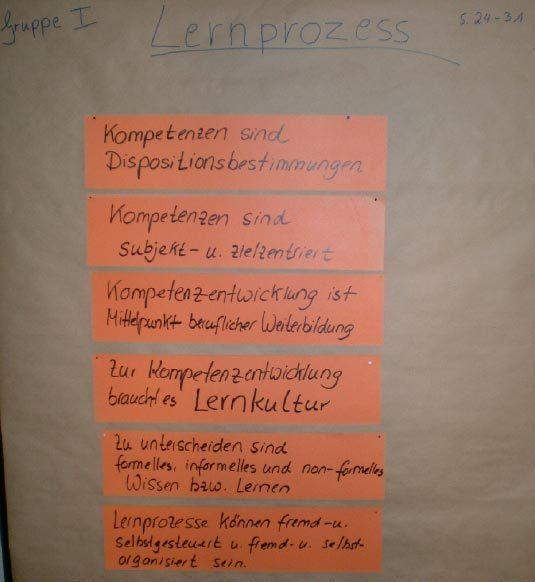 Gruppe I
Lernprozess
S. 24-31
Kompetenzen sind
Dispositionsbestimmungen
Kompetenzen sind
subjekt- u. zielzentriert
Kompetenzentwicklung ist
Mittelpunkt beruflicher Weiterbildung
Zur Kompetenzentwicklung
braucht es Lernkultur
Zu unterscheiden sind
formelles, informelles und non-formelles
Wissen bzw. Lernen
Lernprozesse können fremd- u.
selbstgesteuert u. fremd- u. selbst-
organisiert sein.